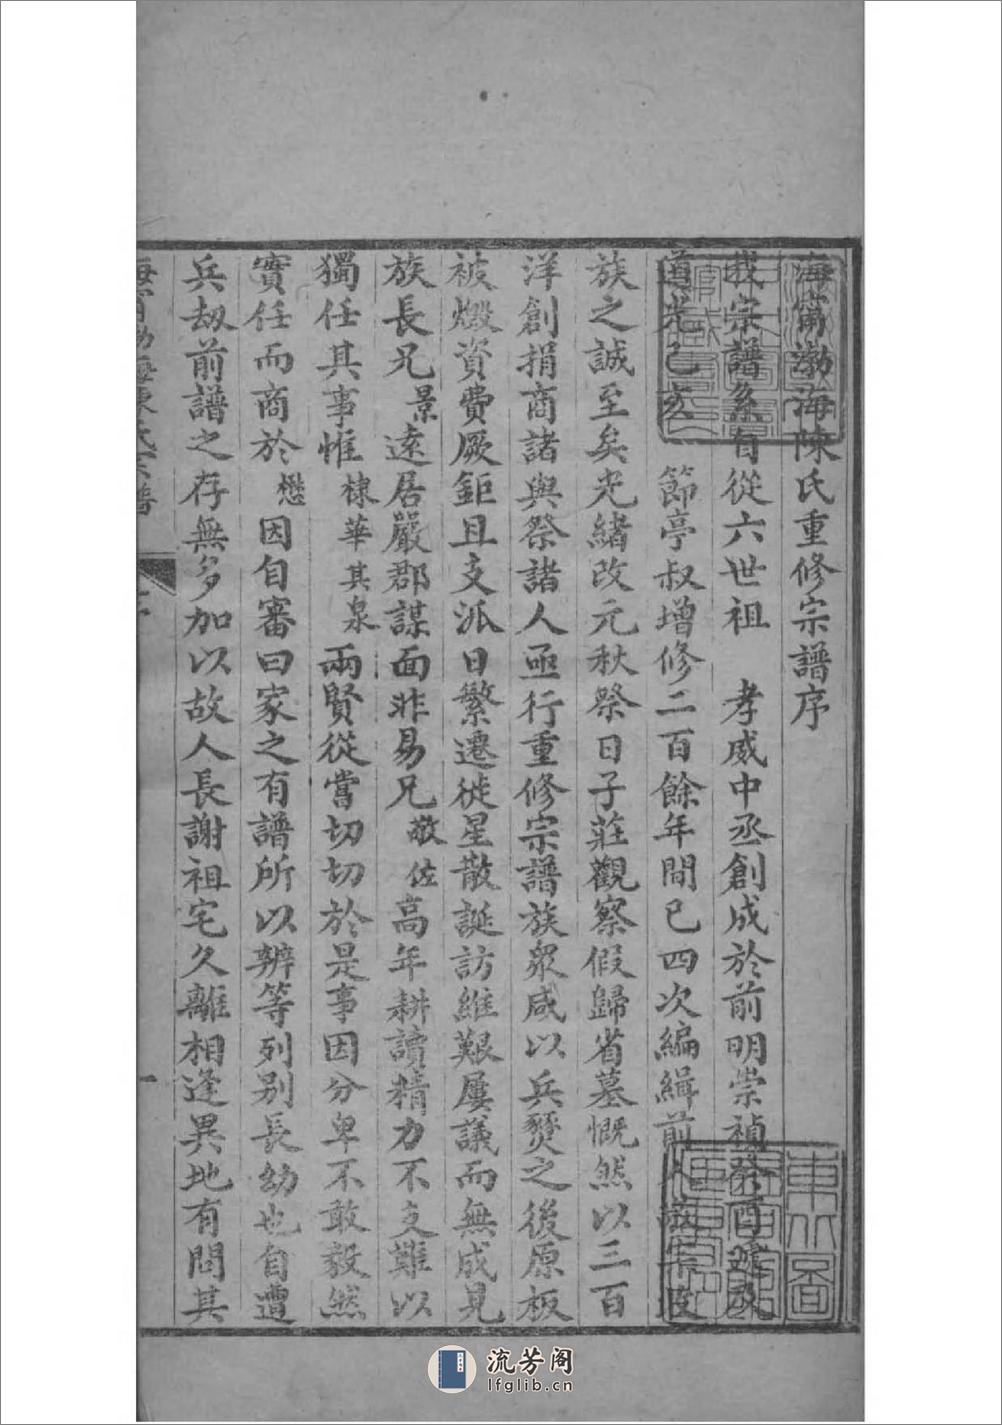 海甯渤海陳氏重修宗譜序
我宗譜系自從六世祖　孝威中丞創成於前明崇禎癸酉遞及
道光己亥　節亭叔增修二百餘年間已四次編緝前人敬宗收
族之誠至矣光緒改元秋祭日子莊觀察假歸省墓慨然以三百
洋創捐商諸與祭諸人亟行重修宗譜族眾咸以兵燹之後原板
被燬資費厥鉅且支派日繁遷徙星散誕訪維艱屢議而無成見
族長兄景遠居嚴郡謀面非易兄敬佐高年耕讀精力不支難以
獨任其事惟棣華其泉兩賢從嘗切切於是事因分卑不敢毅然
實任而商於懋因自審曰家之有譜所以辨等列別長幼也自遭
兵劫前譜之存無多加以故人長謝祖宅久離相逢異地有問其
海甯渤海陳氏宗譜
序
一
流芳阁
lfglib.cn